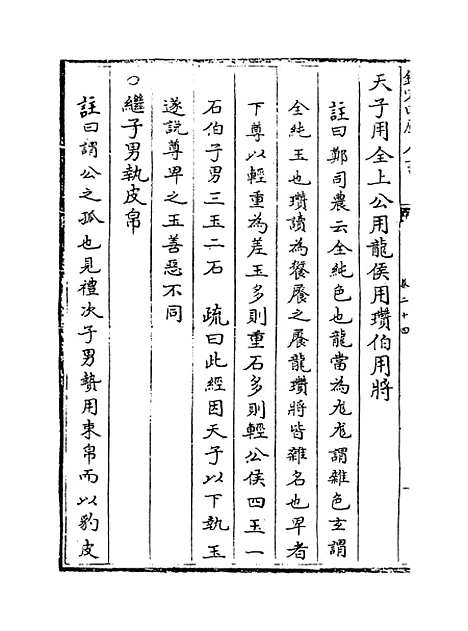 天子用全上公用龍侯用瓚伯用將
註曰鄭司農云全純色也龍當為尨尨謂雜色玄謂
全純玉也瓚讀為餐屨之屨龍瓚將皆雜名也卑者
下尊以輕重為差玉多則重石多則輕公侯四玉一
石伯子男三玉二石 疏曰此經因天子以下執玉
遂說尊卑之玉善惡不同
○繼子男執皮帛
註曰謂公之孤也見禮次子男贄用束帛而以豹皮
卷二十四